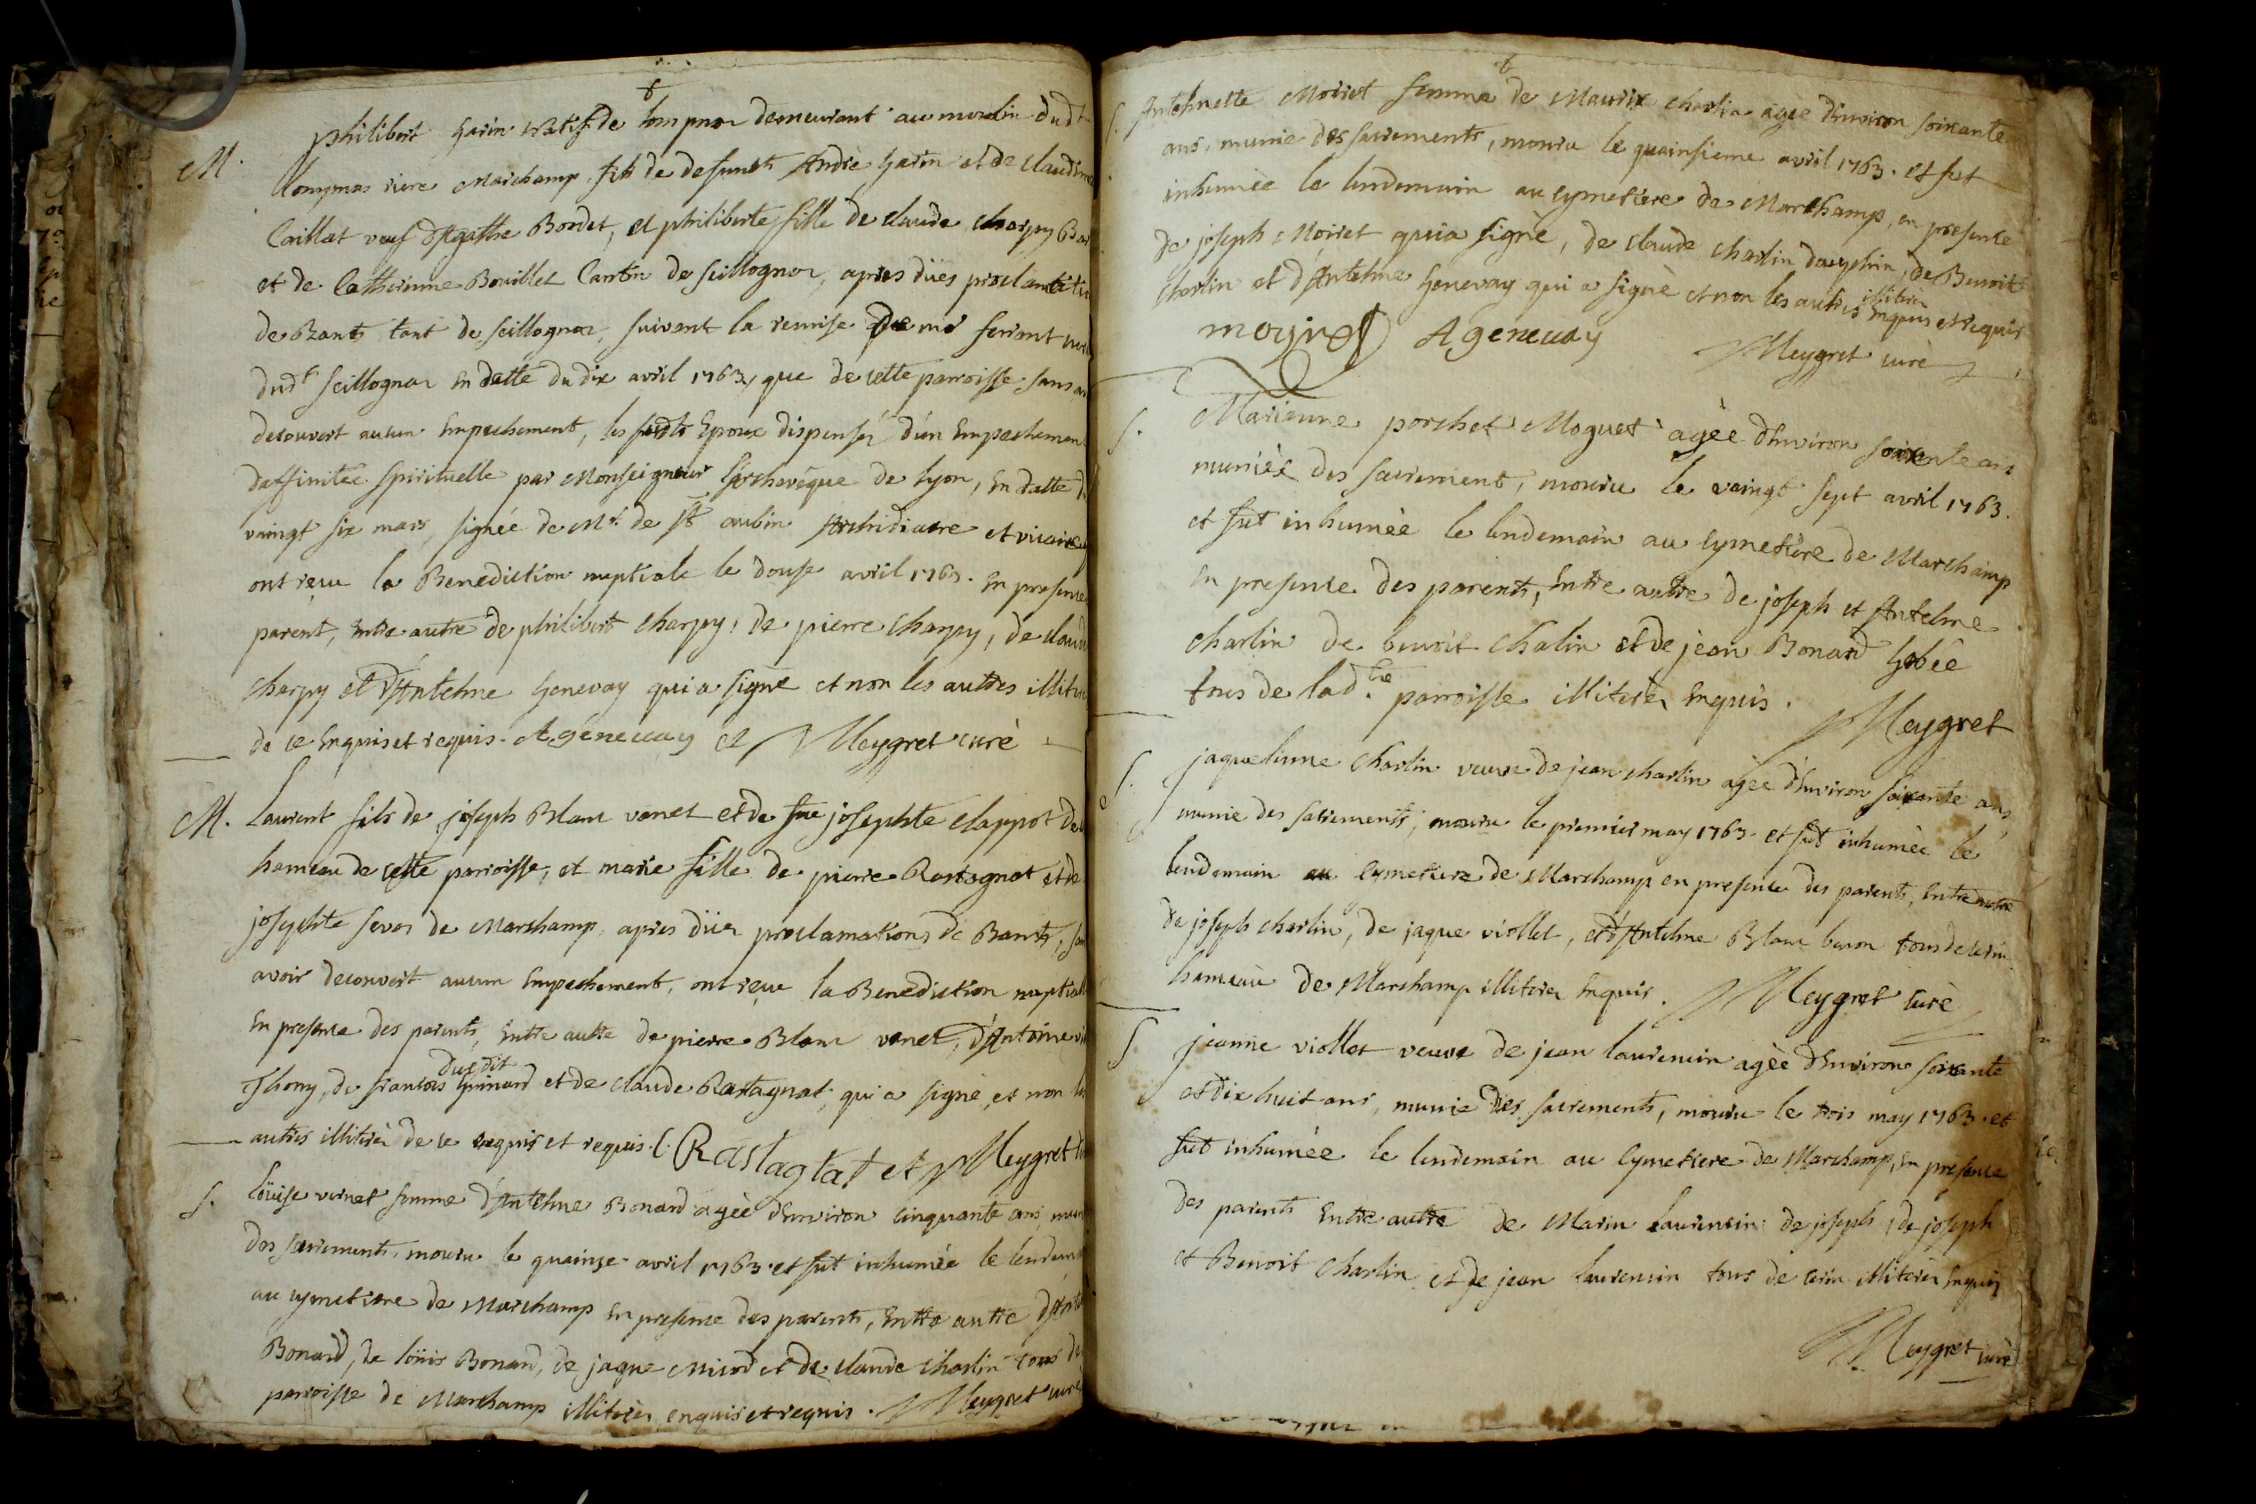 M. philibert Garin natif de Lompnas demeurant au moulin dudt
Lonymas riere Marchamp, fils de defunts André Garin et de Claudine
Caillat veuf d'Agathe Bordet, et philiberte fille de claude charpy
et de Catherinne Bouillet de seillognaz, apres dües
de Bants tant de seillognaz, suivant la remise de mr
dudt seillognaz en datte du dix avril 1763, que de cette parroisse sans
decouvert aucun Empechement, les susdts Epoux dispensés d'un Empechemen
daffinitée spirituelle par Monseigneur l'archevêque de Lyon, En datte
vaingt six mars, signée de Mr. de St aubin Archidiacre et vicaire
ont reçu la Benediction nuptiale le douse avril 1763. En presence
parent, Entre autre de philibert charpy, de pierre charpy, de claude
charpy et d'Antelme Genevay qui a signé et non les auttres
de ce Enquis et requis. A genevay et Meygret curè
M. Laurent fils de joseph Blanc vanet et de fue josephte clappot
hameau de cette parroisse, et marie fille de pierre Rastagnat et de
josephte sevos de Marchamp, apres dües proclamations de Bants,
avoir decouvert aucun Empechement, ont reçu la Benediction
En presence des parents, Entre autre de pierre Blanc vanet, d'Antoine
Thony, de francois ducdit Guinard et de claude Rastagnat, qui a signé, et non
autres illiterés de ce enquis et requis. C. Rastagtat et Meygret
S. Loüise vernet femme d'Antelme Bonard agèe d'Environ cinquante ans,
des sacrements, mouru le quainze avril 1763. et fut inhumée le
au cymetiere de Marchamp en presence des parents, Entre autre
Bonard, de loüis Bonard, de jaque et de claude charlin tous
parroisse de Marchamp illiterés enquis et requis. Meygret curé
S. Antelmette Moiret femme de Maurix charlin agèe d'Environ soixante
ans, munie des sacrements, mouru le quainsieme avril 1763. et fut
inhumèe le lendemain au cymetiere de Marchamp, en presence
de joseph Moiret qui a signè, de claude charlin dauphin, de Benoit
charlin et d'Antelme Genevay qui a signè et non les autres illiteres Enquis et requis
moyiret A genevay Meygret curè
S. Marianne porchet Moguet agèe d'Environ soixente ans
munièe des sacrement, mouru le vaingt sept avril 1763.
et fut inhumèe le lendemain au cymetiere de Marchamp
En presence des parents, Entre autre de joseph et Antelme
charlin de benoit chalin et de jean Bonard Gobèe
tous de ladte parroisse illiterés Enquis.
Meygret
S. jaquelinne charlin veuve de jean charlin agèe d'Environ soixante ans,
munie des sacrements, mouru le premier may 1763. et fut inhumèe le
lendemain au cymetiere de Marchamp en presence des parents, Entre autre
de joseph charlin, de jaque viollet, et d'Antelme Blanc tous de cerin
hameau de Marchamp illiterés Enquis. Meygret curè
S jeanne viollet veuve de jean laurencin agèe d'Environ soixante
et dix huit ans, munie des sacrements, mouru le trois may 1763. et
fut inhumée le lendemain au cymetiere de Marchamp, En presence
des parents Entre autre de Marin Laurencin de joseph, de joseph
et Benoit charlin et de jean laurencin tous de cerin illiterés Enquis
Meygret curè